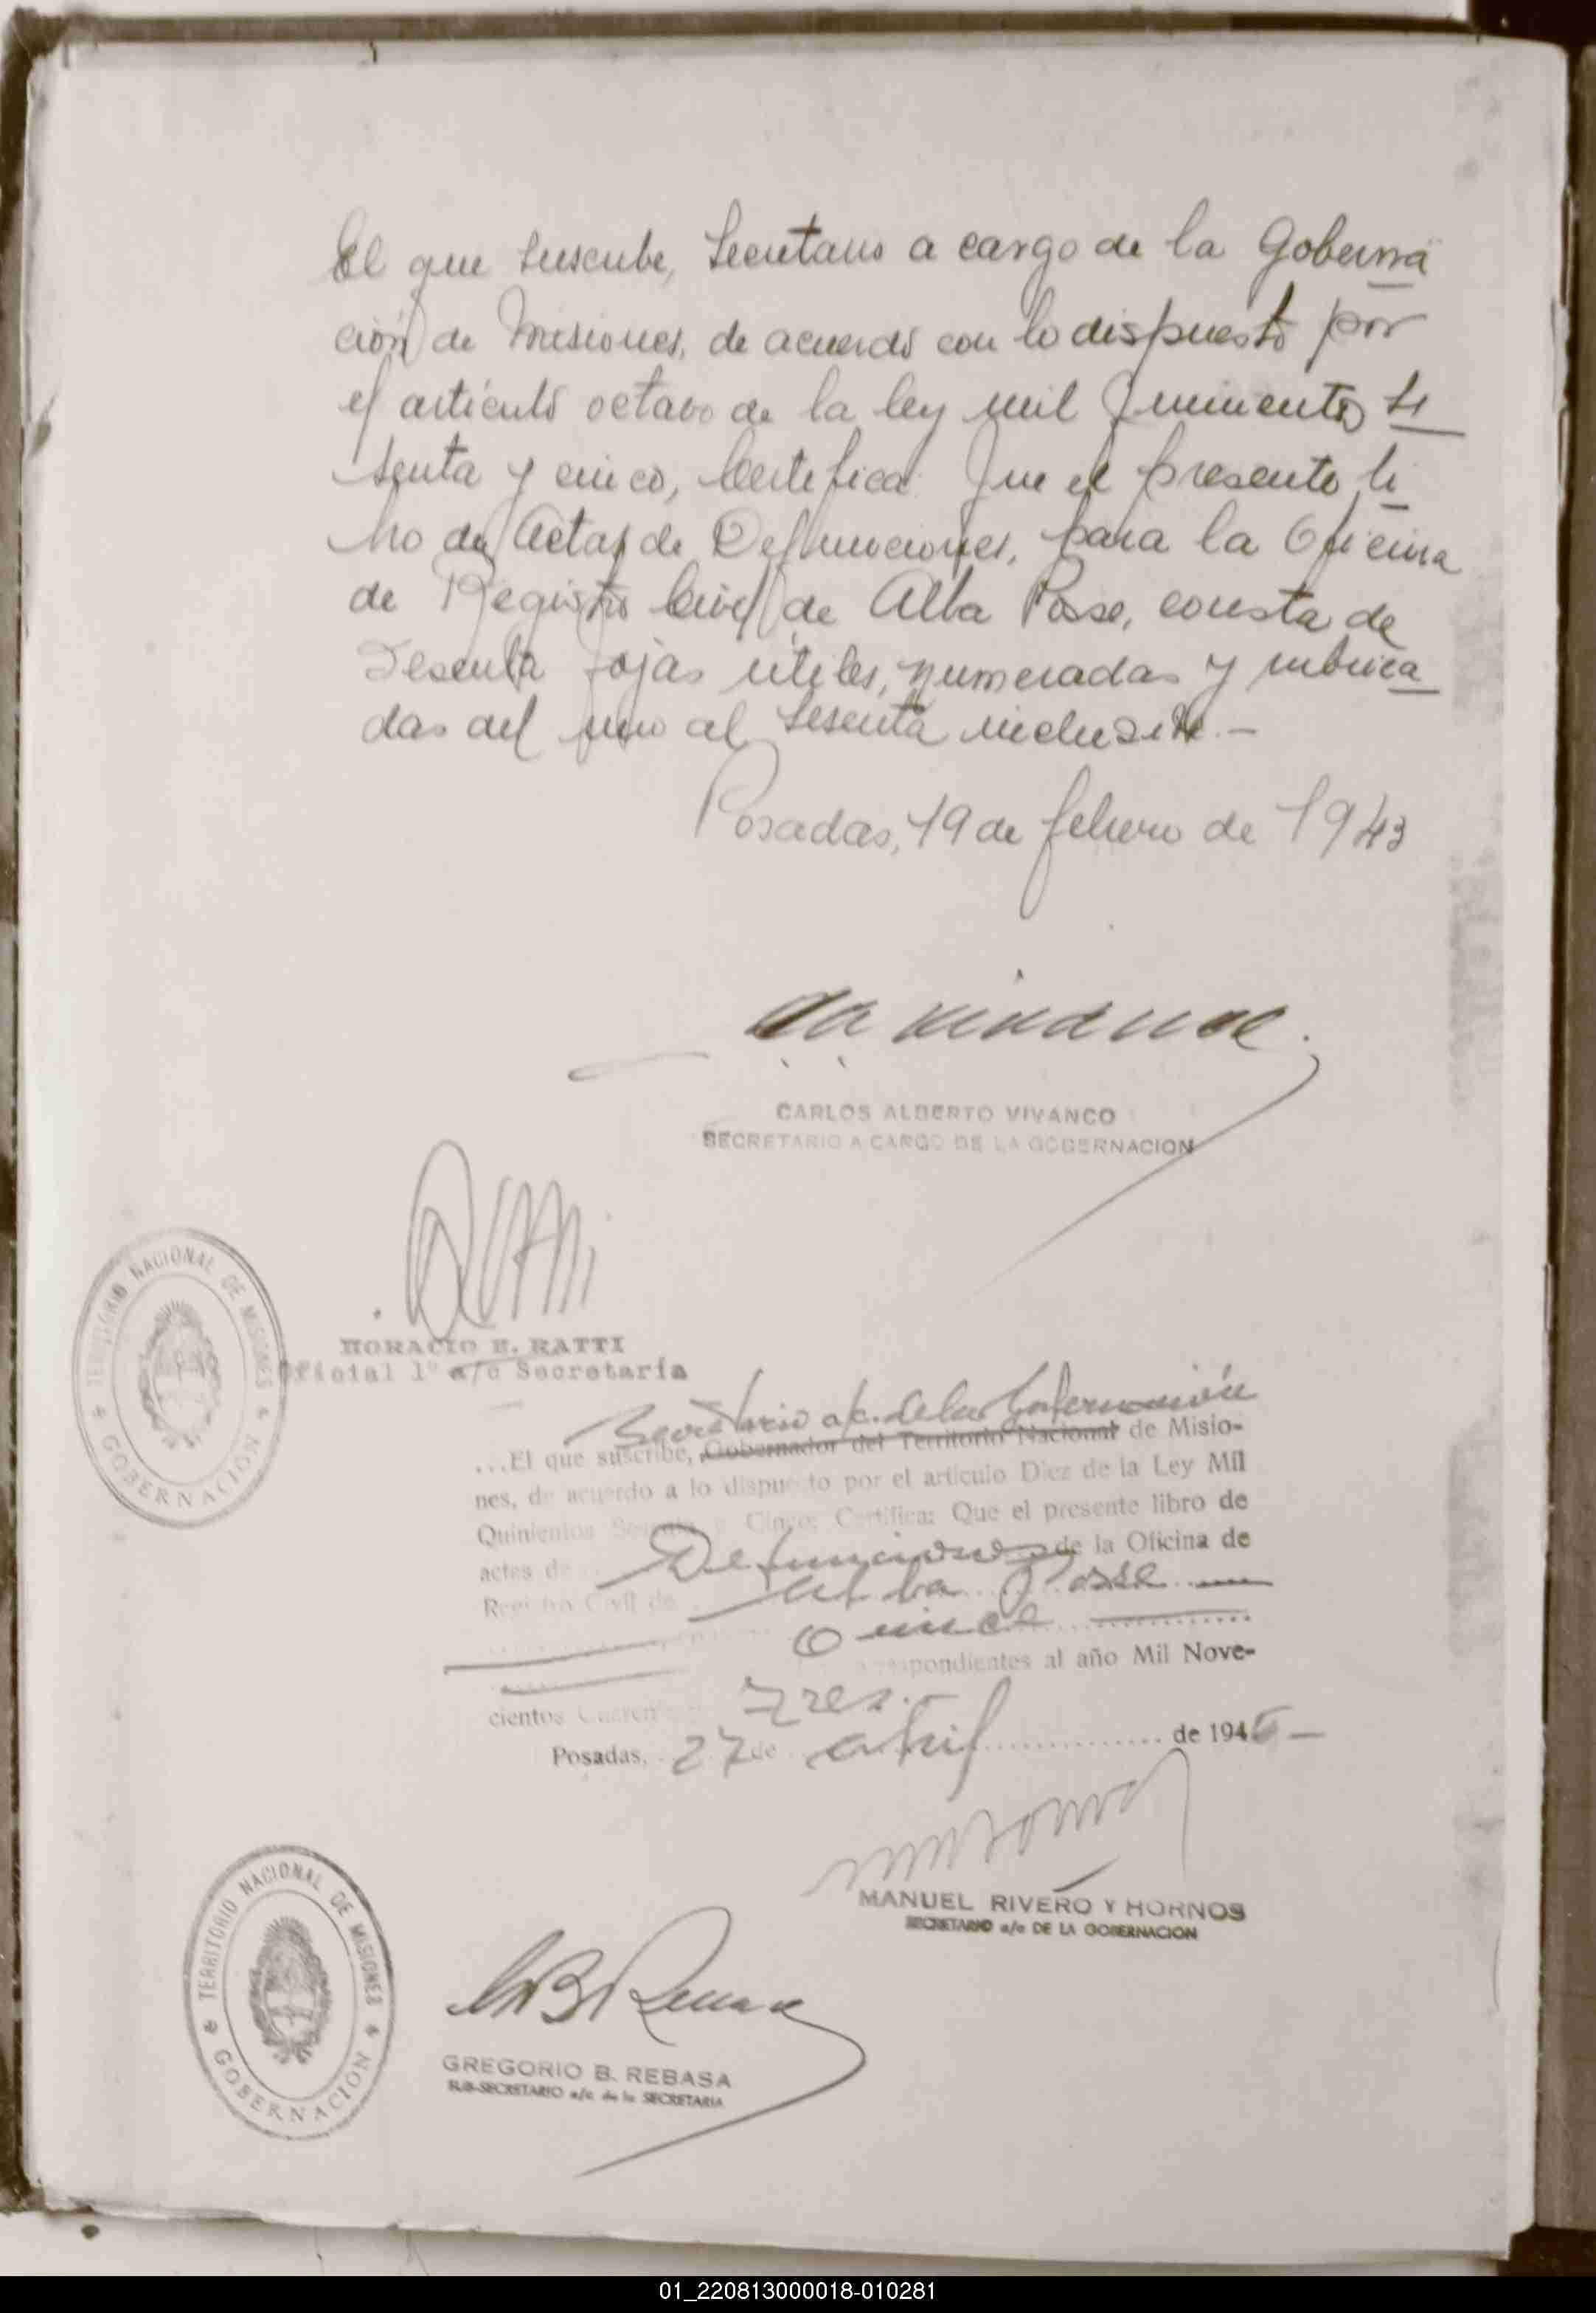 El que suscribe, Secretario a cargo de la Goberna
ción de Misiones, de acuerdo con lo dispuesto por
el artículo octavo de la ley mil quinientos se
senta y cinco, Certifica: Que el presente li
bro de Actas de Defunciones, para la Oficina
de Registro Civil de Alba Posse, consta de
Sesenta fojas útiles, numeradas y rubrica
das del uno al sesenta inclusive.-
Posadas, 19 de febrero de 1943
CARLOS ALBERTO VIVANCO
SECRETARIO A CARGO DE LA GOBERNACION
Ratti
HORACIO E. RATTI
Oficial 1º a/c Secretaría
TERRITORIO NACIONAL DE MISIONES
GOBERNACIÓN
Secretario a/c. de la Gobernación
...El que suscribe, Gobernador del Territorio Nacional de Misio-
nes, de acuerdo a lo dispuesto por el artículo Diez de la Ley Mil
Quinientos Sesenta y Cinco; Certifica: Que el presente libro de
actas de Defunciones de la Oficina de
Registro Civil de Alba Posse
Quince
correspondientes al año Mil Nove-
cientos Cuarenta Tres.-
Posadas, 27 de abril de 1945-
MANUEL RIVERO Y HORNOS
SECRETARIO a/c DE LA GOBERNACION
TERRITORIO NACIONAL DE MISIONES
GOBERNACIÓN
GREGORIO B. REBASA
SUB-SECRETARIO a/c. de la SECRETARIA
01_220813000018-010281